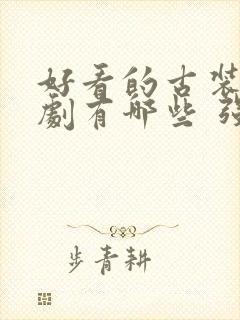 好看的古装
劇有哪些 强
步青耕